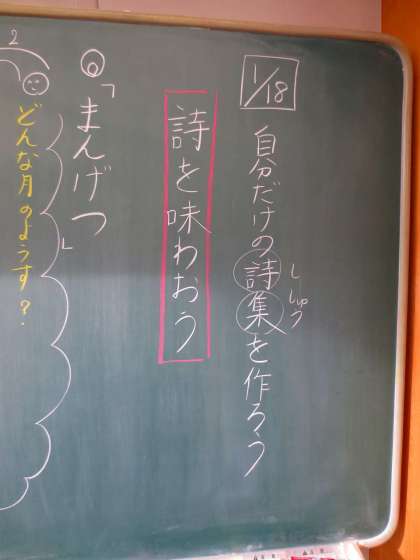 1/18
自分だけの詩集を作ろう
ししゅう
詩を味わおう
「まんげつ」
どんな月のようす？
2